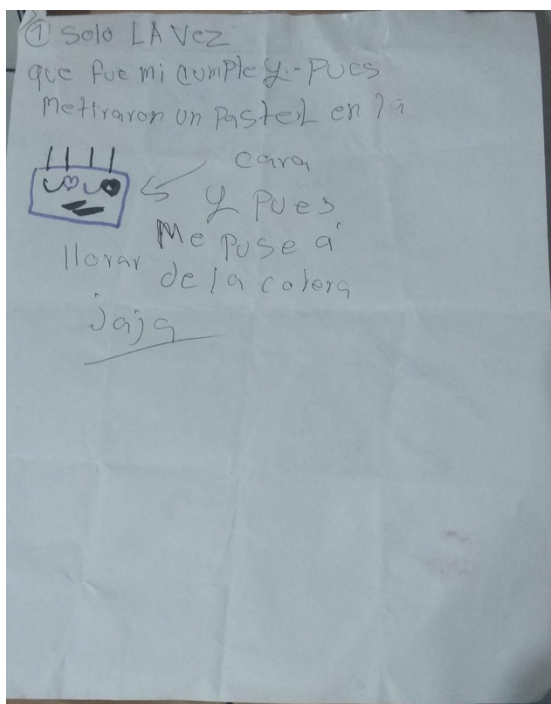 ① Solo LA Vez
que fue mi cumple y.-Pues
Metiraron un Pastel en la
cara
y Pues
Me puse a
llorar
de la colera
jaja